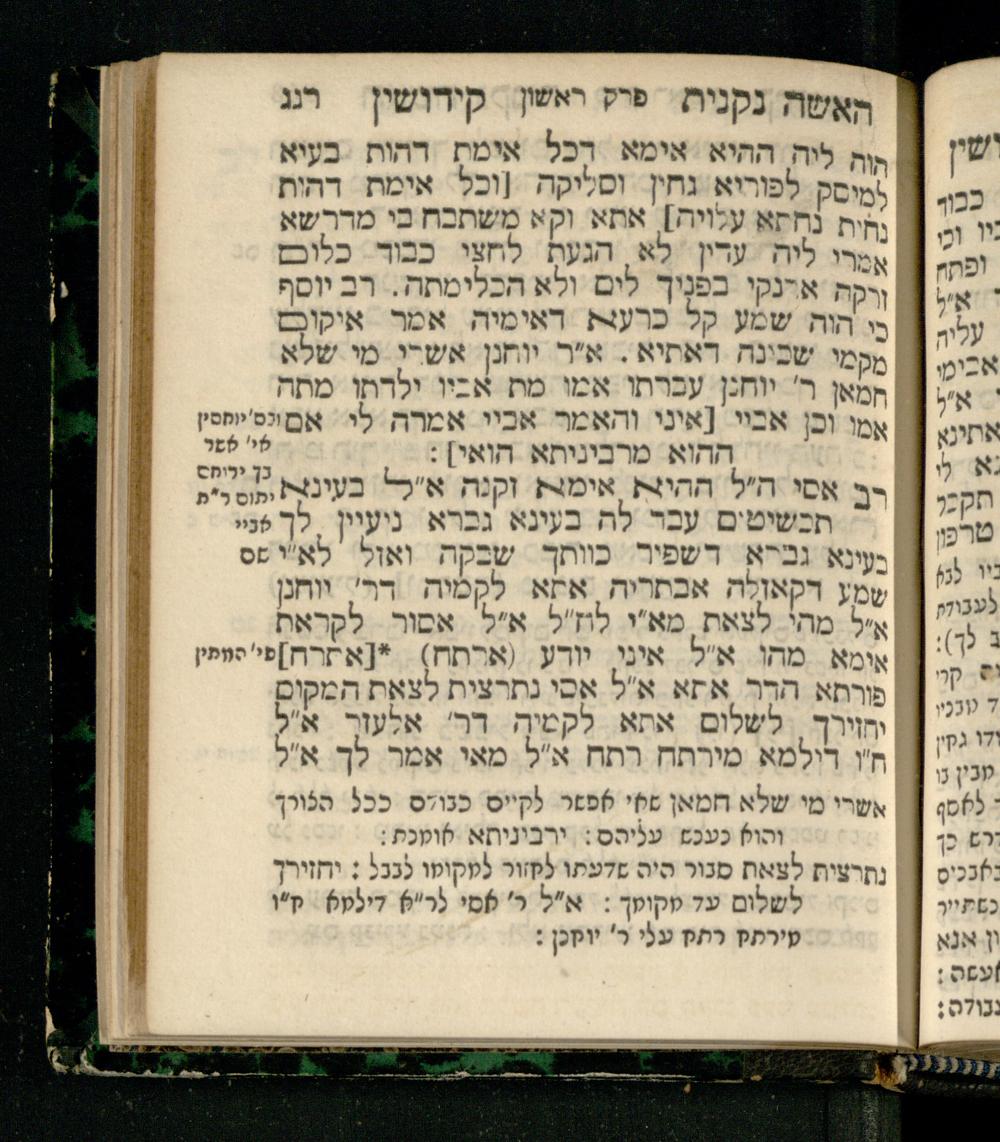 האשה נקנית פרק ראשון קידושין רנג
הוה ליה ההיא אימא דכל אימת דהות בעיא
למיסק לפוריא גחין וסליקה [וכל אימת דהות
נחית נחתא עלויה] אתא וקא משתבח בי מדרשא
אמרי ליה עדין לא הגעת לחצי כבוד כלום
זרקה ארנקי בפניך לים ולא הכלימתה. רב יוסף
כי הוה שמע קל כרעא דאימיה אמר איקום
מקמי שכינה דאתיא. א״ר יוחנן אשרי מי שלא
חמאן ר׳ יוחנן עברתו אמו מת אביו ילדתו מתה
אמו וכן אביי [איני והאמר אביי אמרה לי אם
ההוא מרביניתא הואי]:
רב אסי ה״ל ההיא אימא זקנה א״ל בעינא
תכשיטים עבד לה בעינא גברא ניעיין לך
בעינא גברא דשפיר כוותך שבקה ואזל לא״י
שמע דקאזלה אבתריה אתא לקמיה דר׳ יוחנן
א״ל מהי לצאת מא״י לח״ל א״ל אסור לקראת
אימא מהו א״ל איני יודע (ארתח) *[אתרח]
פורתא הדר אתא א״ל אסי נתרצית לצאת המקום
יחזירך לשלום אתא לקמיה דר׳ אלעזר א״ל
ח״ו דילמא מירתח רתח א״ל מאי אמר לך א״ל
וכס׳ יוחסין
אי׳ אשר
בך ירוחם
יתום ר״ת
אביי
שם
פי׳ המתין
אשרי מי שלא חמאן שאי אפשר לקיים כבודם ככל הצורך
והוא נענש עליהם: ירביניתא אומנת:
נתרצית לצאת סבור היה שדעתו לחזור למקומו לבבל: יחזירך
לשלום עד מקומך: א״ל ר׳ אסי לר״א דילמא ח״ו
מירתח רתח עלי ר׳ יוחנן:
ושין
כבוד
ופתח
א״ל
עליה
אבימי
א״ל
אתינא
לי
תקבר
טרפון
ביו לבא
לעבודת
לך):
קרי